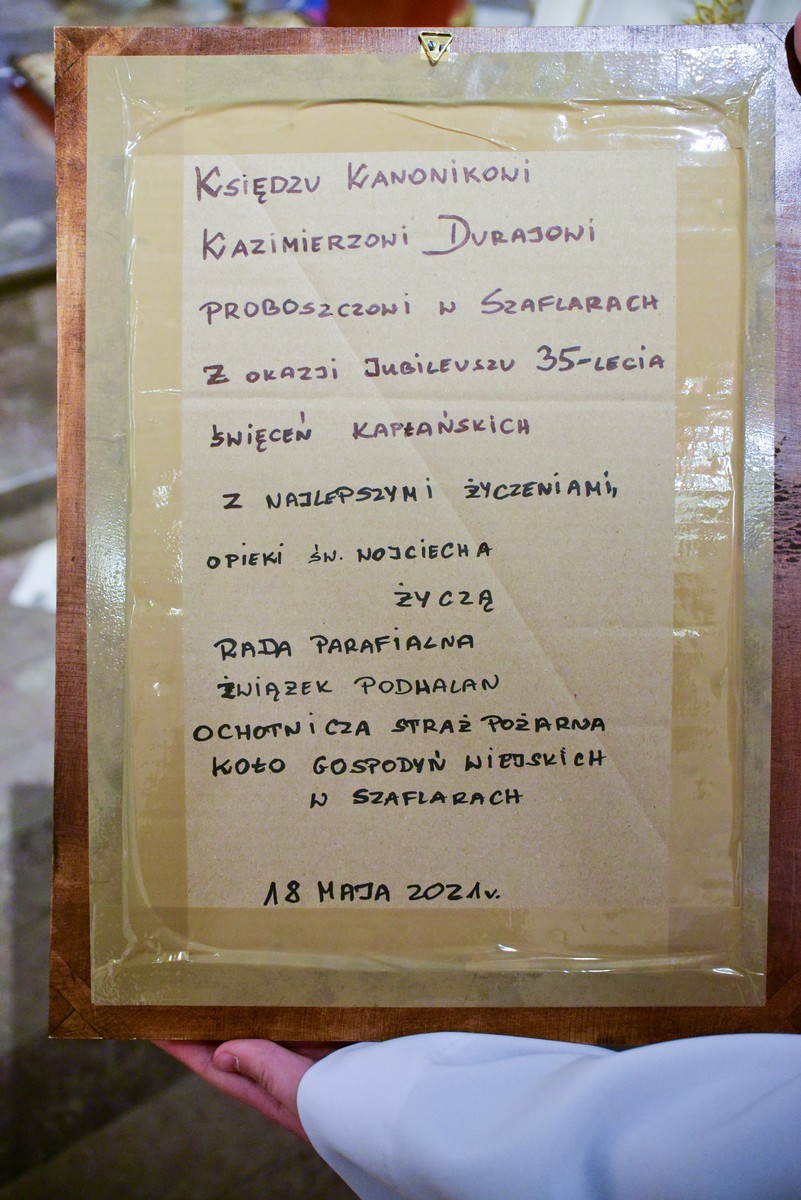 Księdzu Kanonikowi
Kazimierzowi Durajowi
proboszczowi w Szaflarach
z okazji Jubileuszu 35-lecia
święceń kapłańskich
z najlepszymi życzeniami,
opieki św. Wojciecha
życzą
Rada Parafialna
Związek Podhalan
Ochotnicza Straż Pożarna
Koło Gospodyń Wiejskich
w Szaflarach
18 maja 2021r.